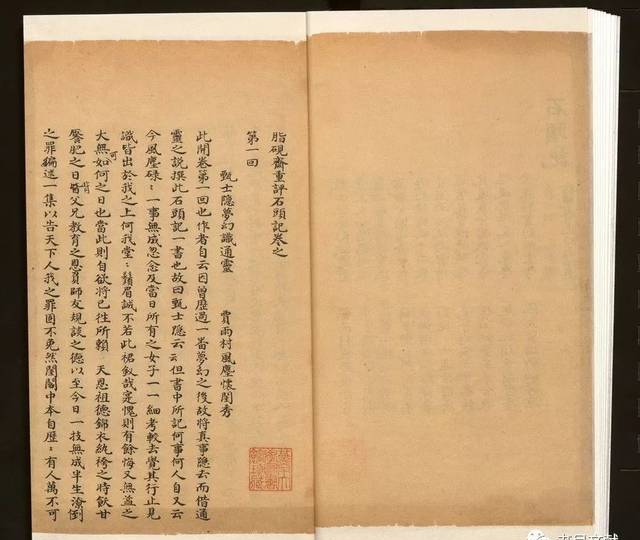 脂硯齋重評石頭記卷之
第一回
甄士隱夢幻識通靈　賈雨村風塵懷閨秀
此開卷第一回也作者自云因曾歷過一番夢幻之後故將真事隱去而借通
靈之說撰此石頭記一書也故曰甄士隱云云但書中所記何事何人自又云
今風塵碌〻一事無成忽念及當日所有之女子一一細考較去覺其行止見
識皆出於我之上何我堂〻鬚眉誠不若此裙釵哉寔愧則有餘悔又無益之
大無可如何之日也當此則自欲將已往所賴　天恩祖德錦衣紈袴之時飫甘
饜肥之日背父兄教育之恩負師友規談之德以至今日一技無成半生潦倒
之罪編述一集以告天下人我之罪固不免然閨閣中本自歷〻有人萬不可